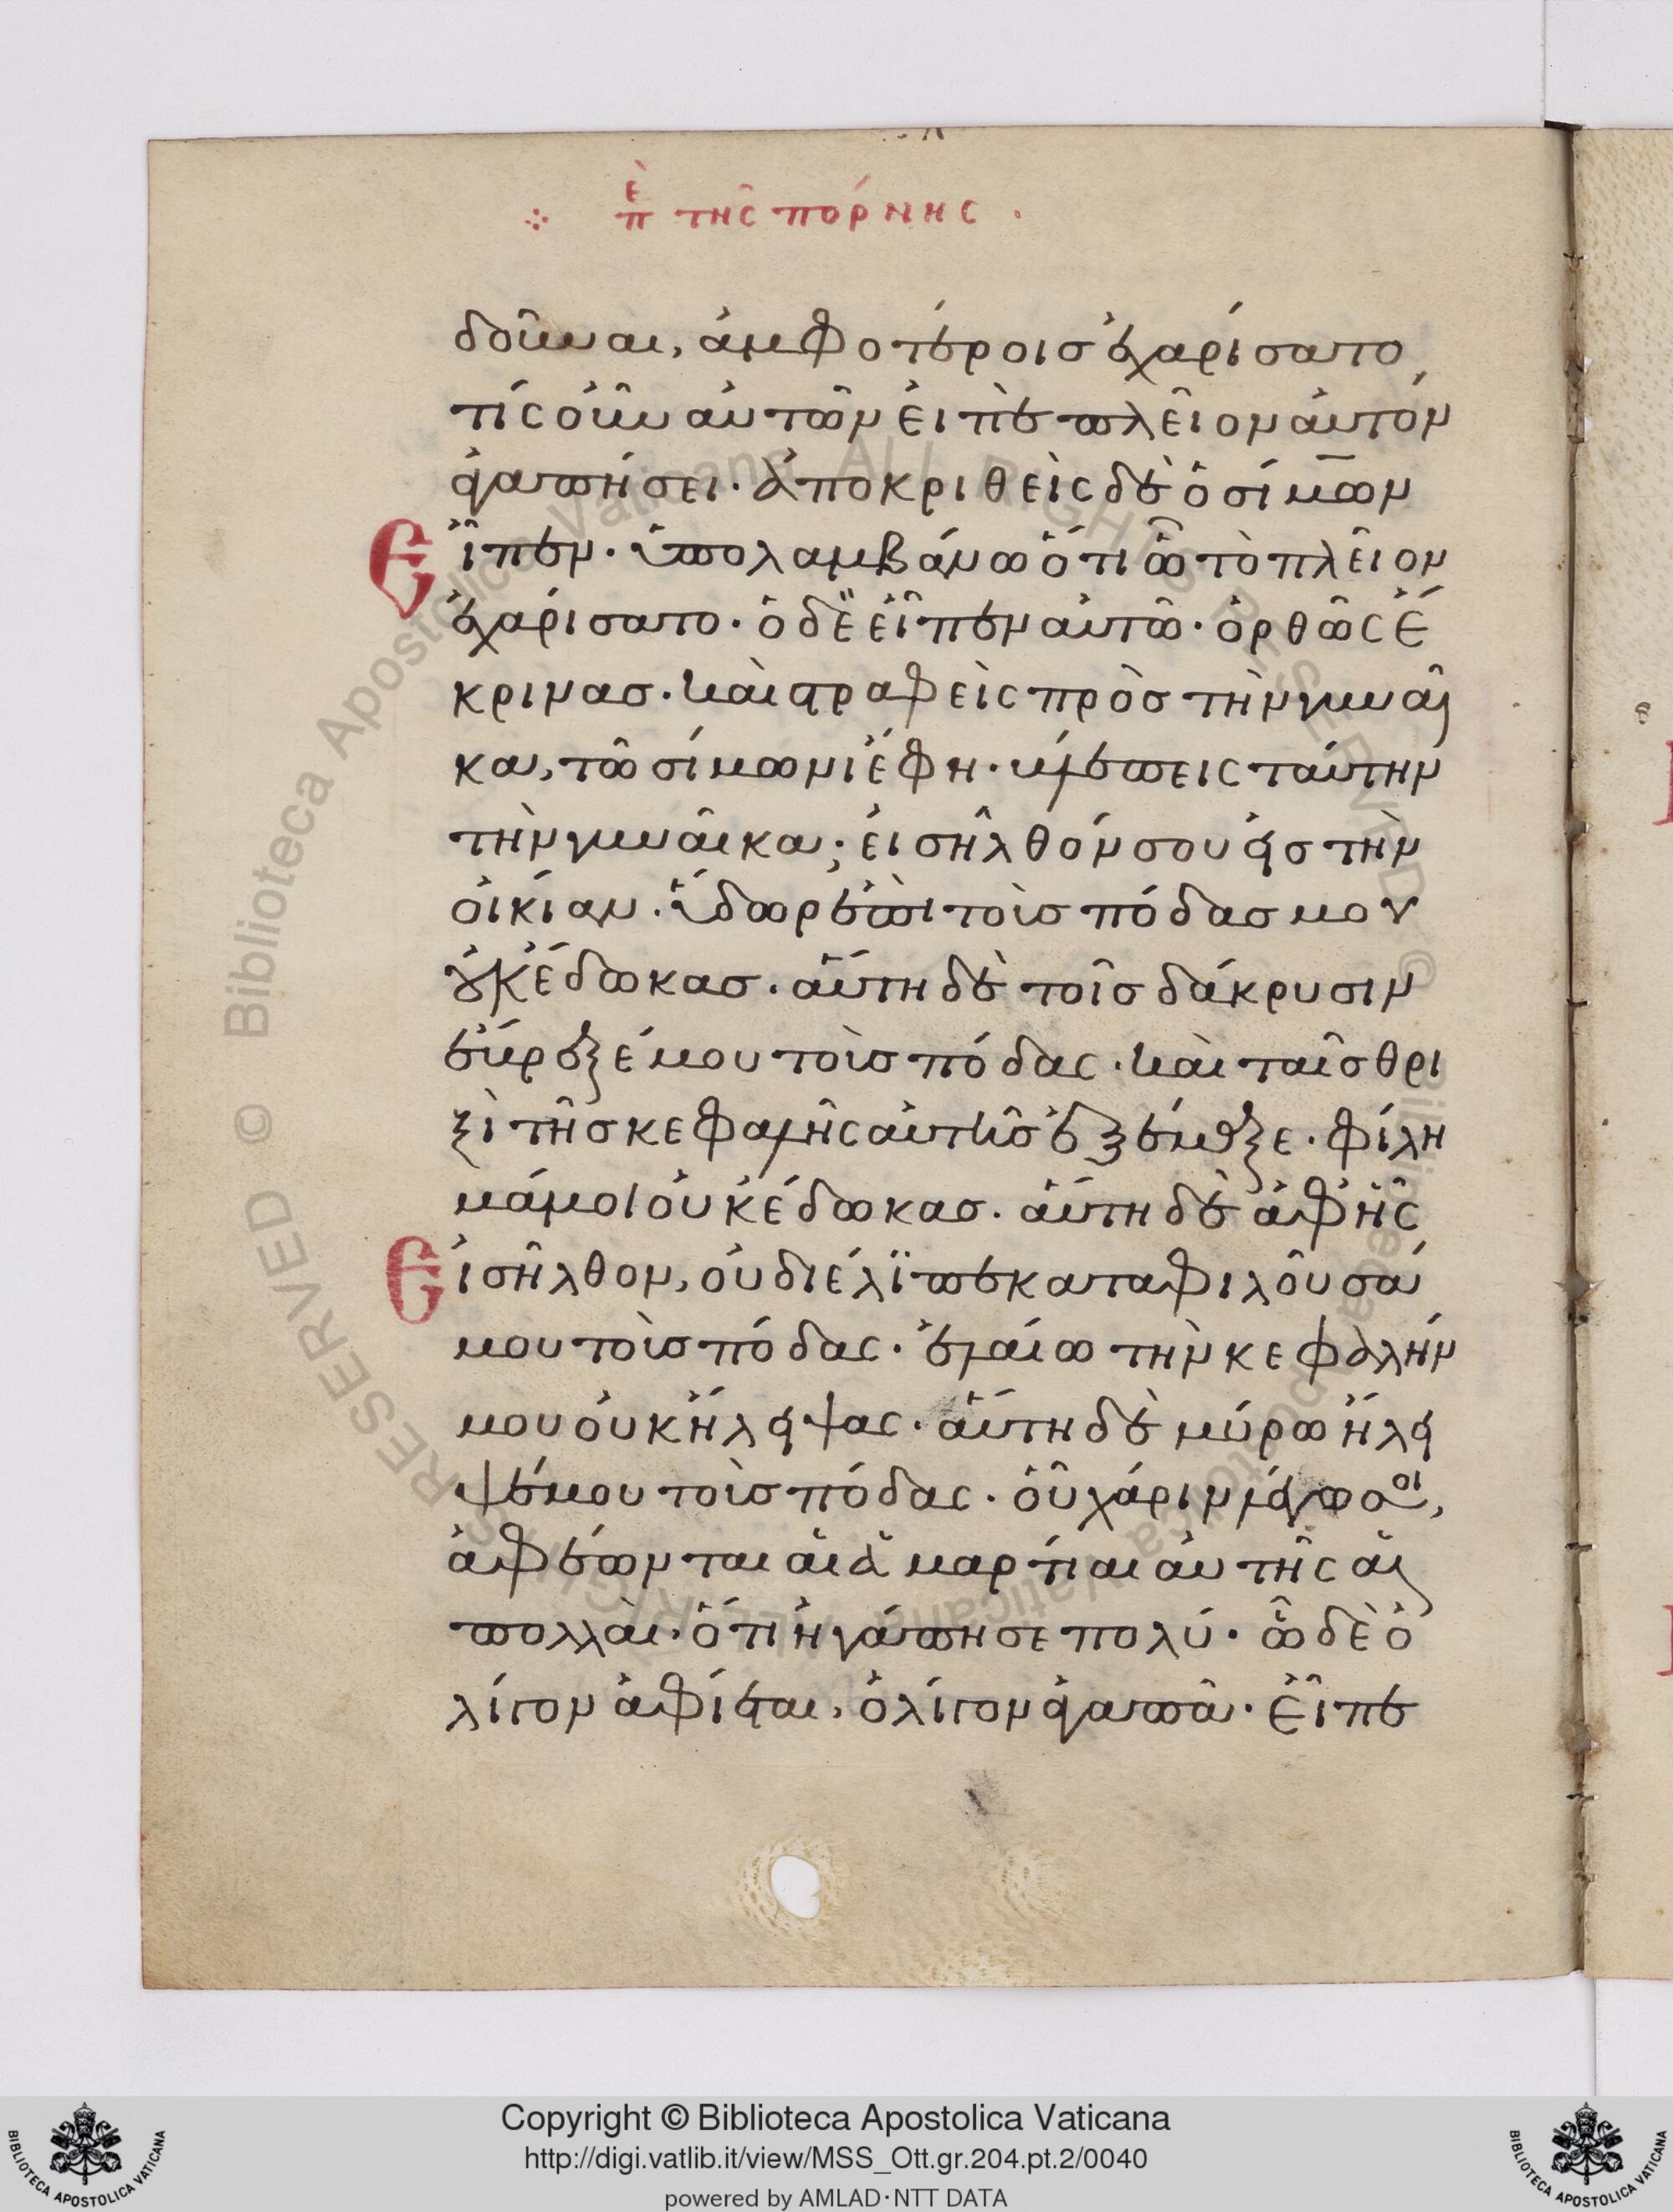 ἐπ τῆς πόρνης.
δοῦναι, ἀμφοτέροισ ἐχαρίσατο,
τίς οὖν αὐτῶν εἰπὲ πλεῖον αὐτὸν
ἀγαπήσει. ἀποκριθεὶς δὲ ὁ σίμων
Εἶπεν. ὑπολαμβάνω ὅτι ὧ τὸ πλεῖον
ἐχαρίσατο. ὁ δὲ εἶπεν αὐτῶ. ὀρθῶς ἔ
κρινασ. καὶ στραφεὶς πρὸσ τὴν γυναῖ
κα, τῶ σίμωνι ἔφη. βλέπεις ταύτην
τὴν γυναῖκα; εἰσῆλθόν σου εἰσ τὴν
οἰκίαν. ὕδωρ ἐπὶ τοὺσ πόδασ μου
οὐκ ἔδωκασ. αὕτη δὲ τοῖσ δάκρυσιν
ἔβρεξέ μου τοὺσ πόδας. καὶ ταῖσ θρι
ξὶ τῆσ κεφαλῆς αὐτῆσ ἐξέμαξε. φίλη
μά μοι οὐκ ἔδωκασ. αὕτη δὲ ἀφ' ἧς
Εἰσῆλθον, οὐ διέλϊπε καταφιλοῦσά
μου τοὺσ πόδας. ἐλαίω τὴν κεφαλήν
μου οὐκ ἤλειψας. αὕτη δὲ μύρω ἤλει
ψέ μου τοὺσ πόδας. οὗ χάριν λέγω σοι,
ἀφέωνται αἱ ἁμαρτίαι αὐτῆς αἱ
πολλαὶ. ὅτι ἠγάπησε πολύ. ὧ δὲ ὀ
λίγον ἀφίεται, ὀλίγον ἀγαπᾶ. Εἶπε
Copyright © Biblioteca Apostolica Vaticana
http://digi.vatlib.it/view/MSS_Ott.gr.204.pt.2/0040
powered by AMLAD·NTT DATA
BIBLIOTECA APOSTOLICA VATICANA
BIBLIOTECA APOSTOLICA VATICANA